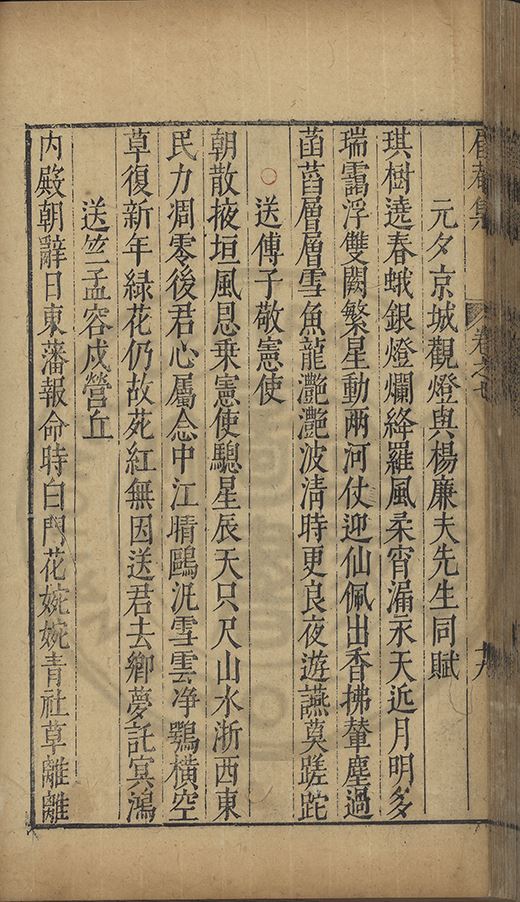 元夕京城觀燈與楊廉夫先生同賦
琪樹遶春蛾銀燈爛絳羅風柔宵漏永天近月明多
瑞靄浮雙闕繁星動兩河仗迎仙佩出香拂輦塵過
菡萏層層雪魚龍灔灔波清時更良夜遊讌莫蹉跎
送傅子敬憲使
朝散掖垣風恩乗憲使驄星辰天只尺山水浙西東
民力凋零後君心屬念中江晴鷗汎雪雲净鶚横空
草復新年緑花仍故苑紅無因送君去鄉夢託冥鴻
送竺孟容戍營丘
内殿朝辭日東藩報命時白門花婉婉青社草離離
集
卷之七
十八